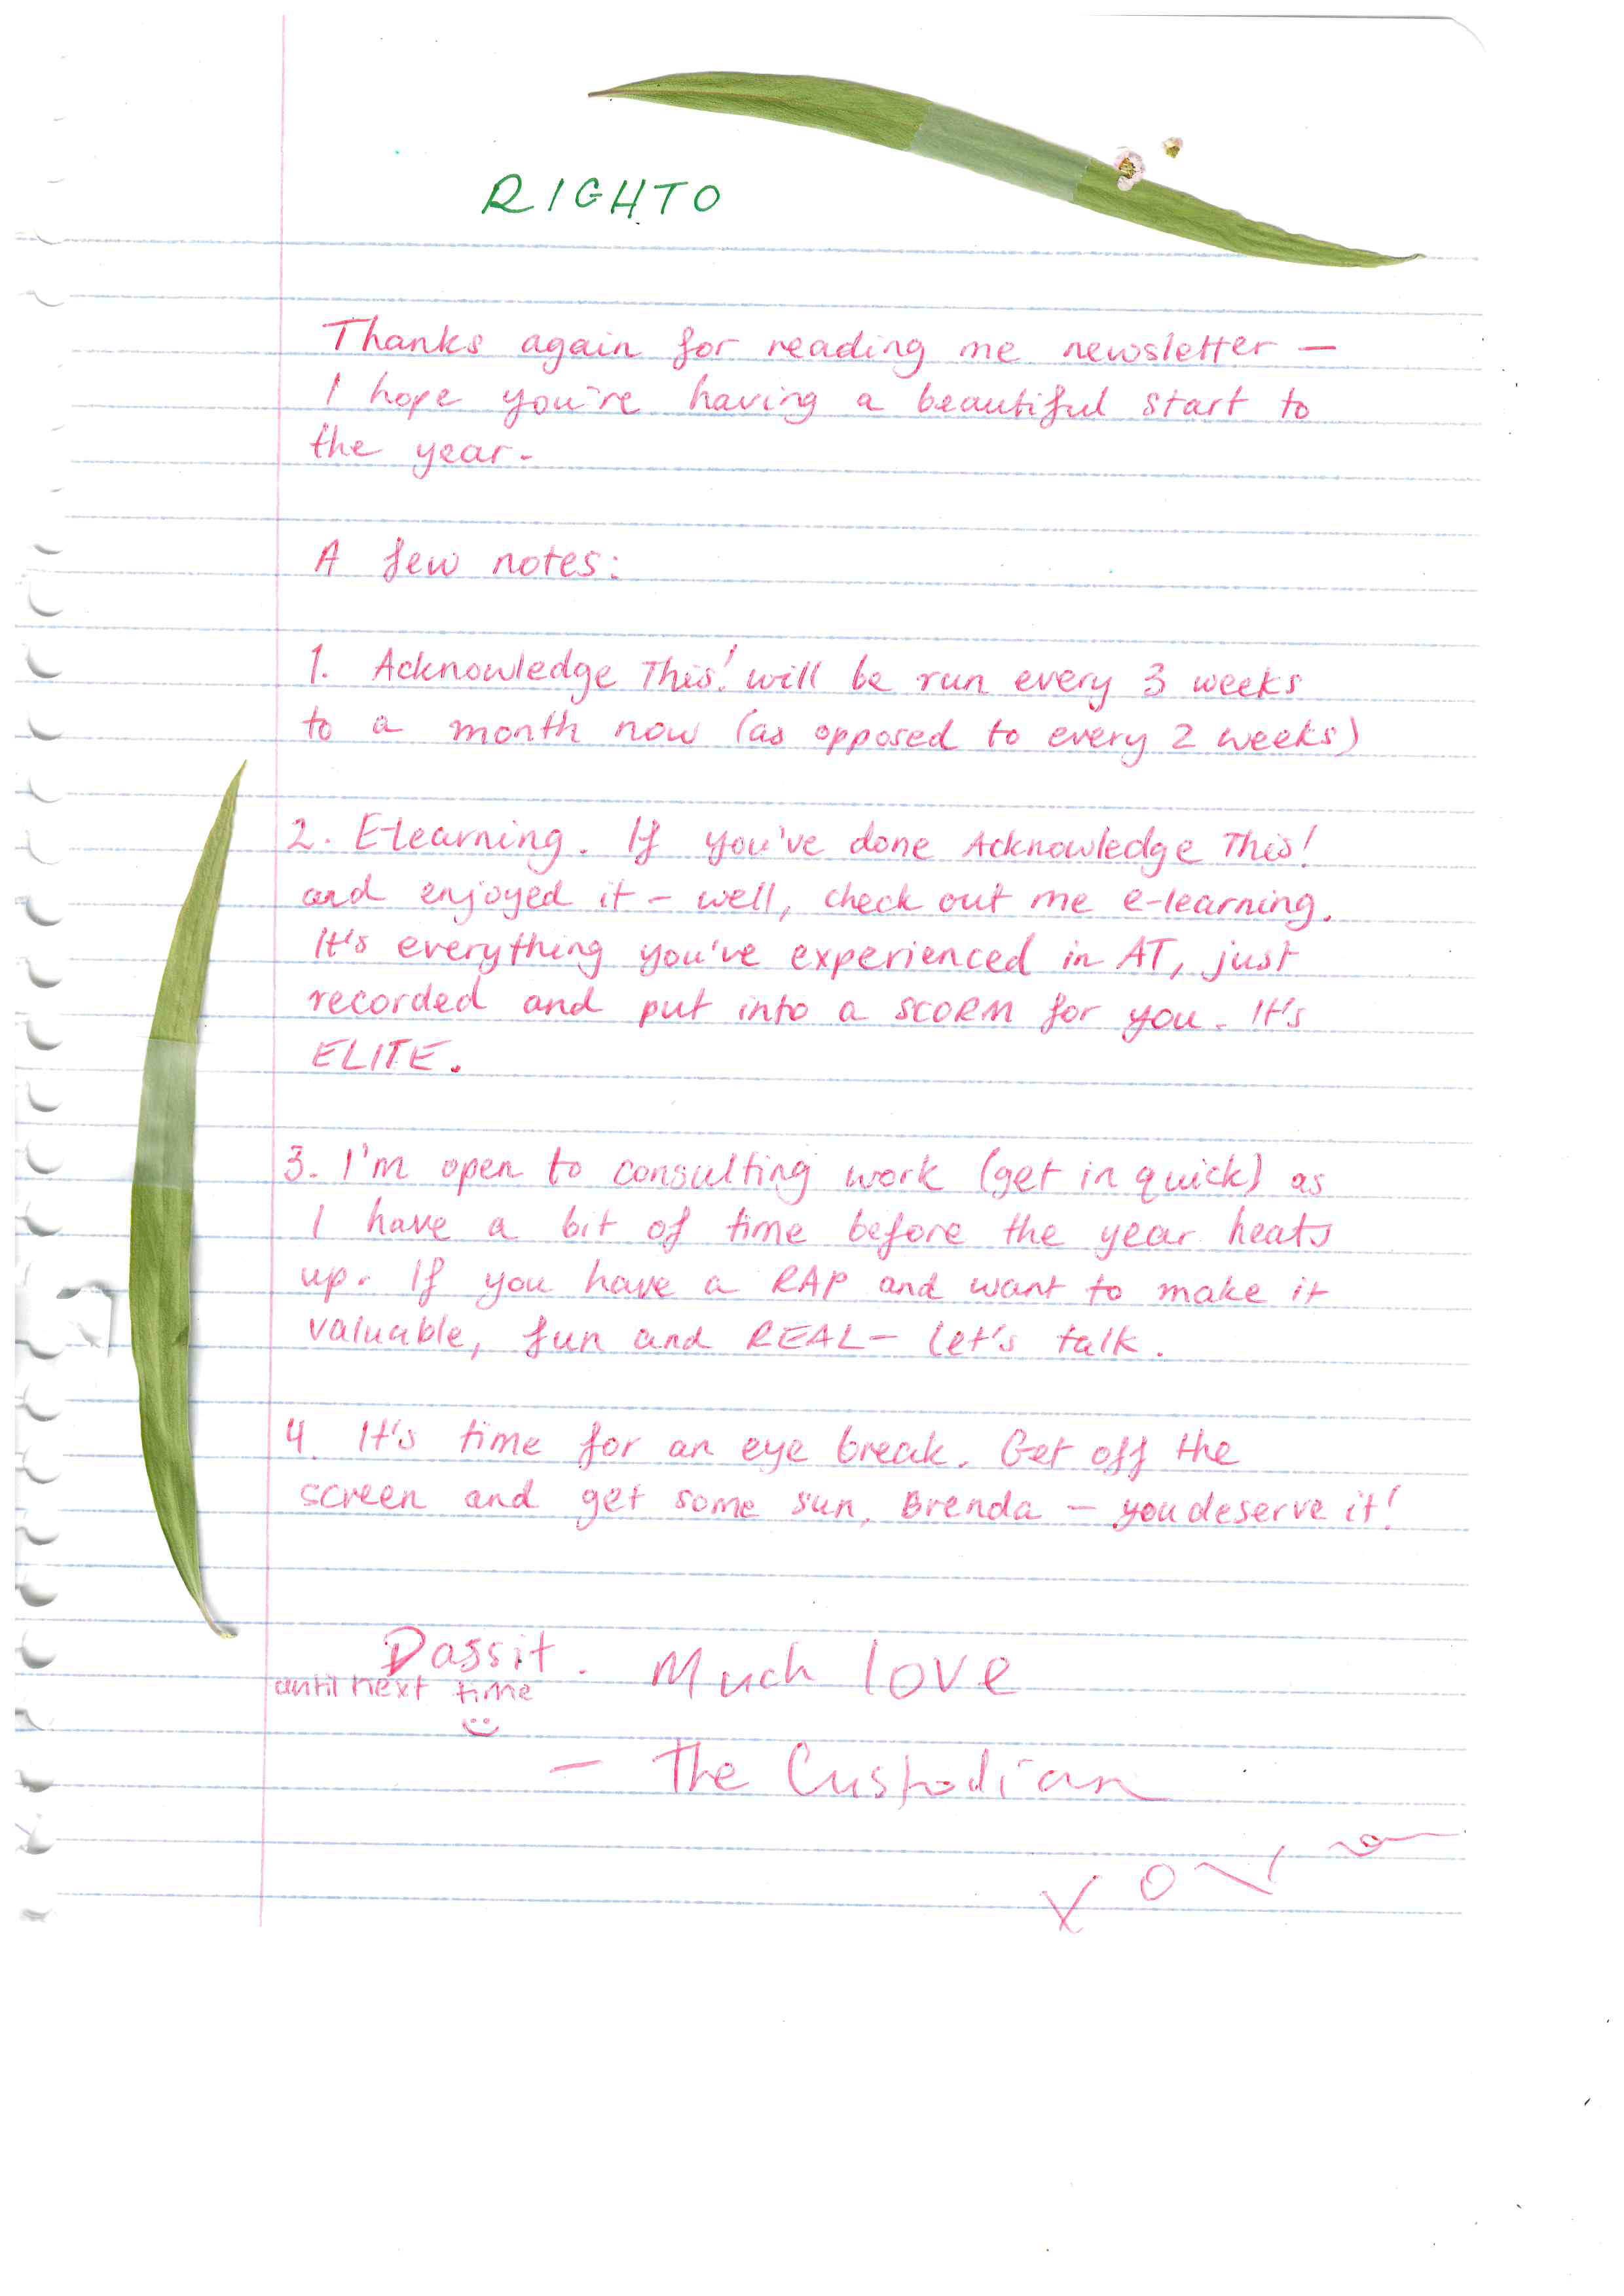 RIGHTO
Thanks again for reading me newsletter —
I hope you're having a beautiful start to
the year.
A few notes:
1. Acknowledge This! will be run every 3 weeks
to a month now (as opposed to every 2 weeks)
2. E-learning. If you've done Acknowledge This!
and enjoyed it – well, check out me e-learning.
It's everything you've experienced in AT, just
recorded and put into a SCORM for you. It's
ELITE.
3. I'm open to consulting work (get in quick) as
I have a bit of time before the year heats
up. If you have a RAP and want to make it
valuable, fun and REAL – let's talk.
4. It's time for an eye break. Get off the
screen and get some sun, Brenda – you deserve it!
Dassit. Much love
until next time
:)
— The Custodian
X O X